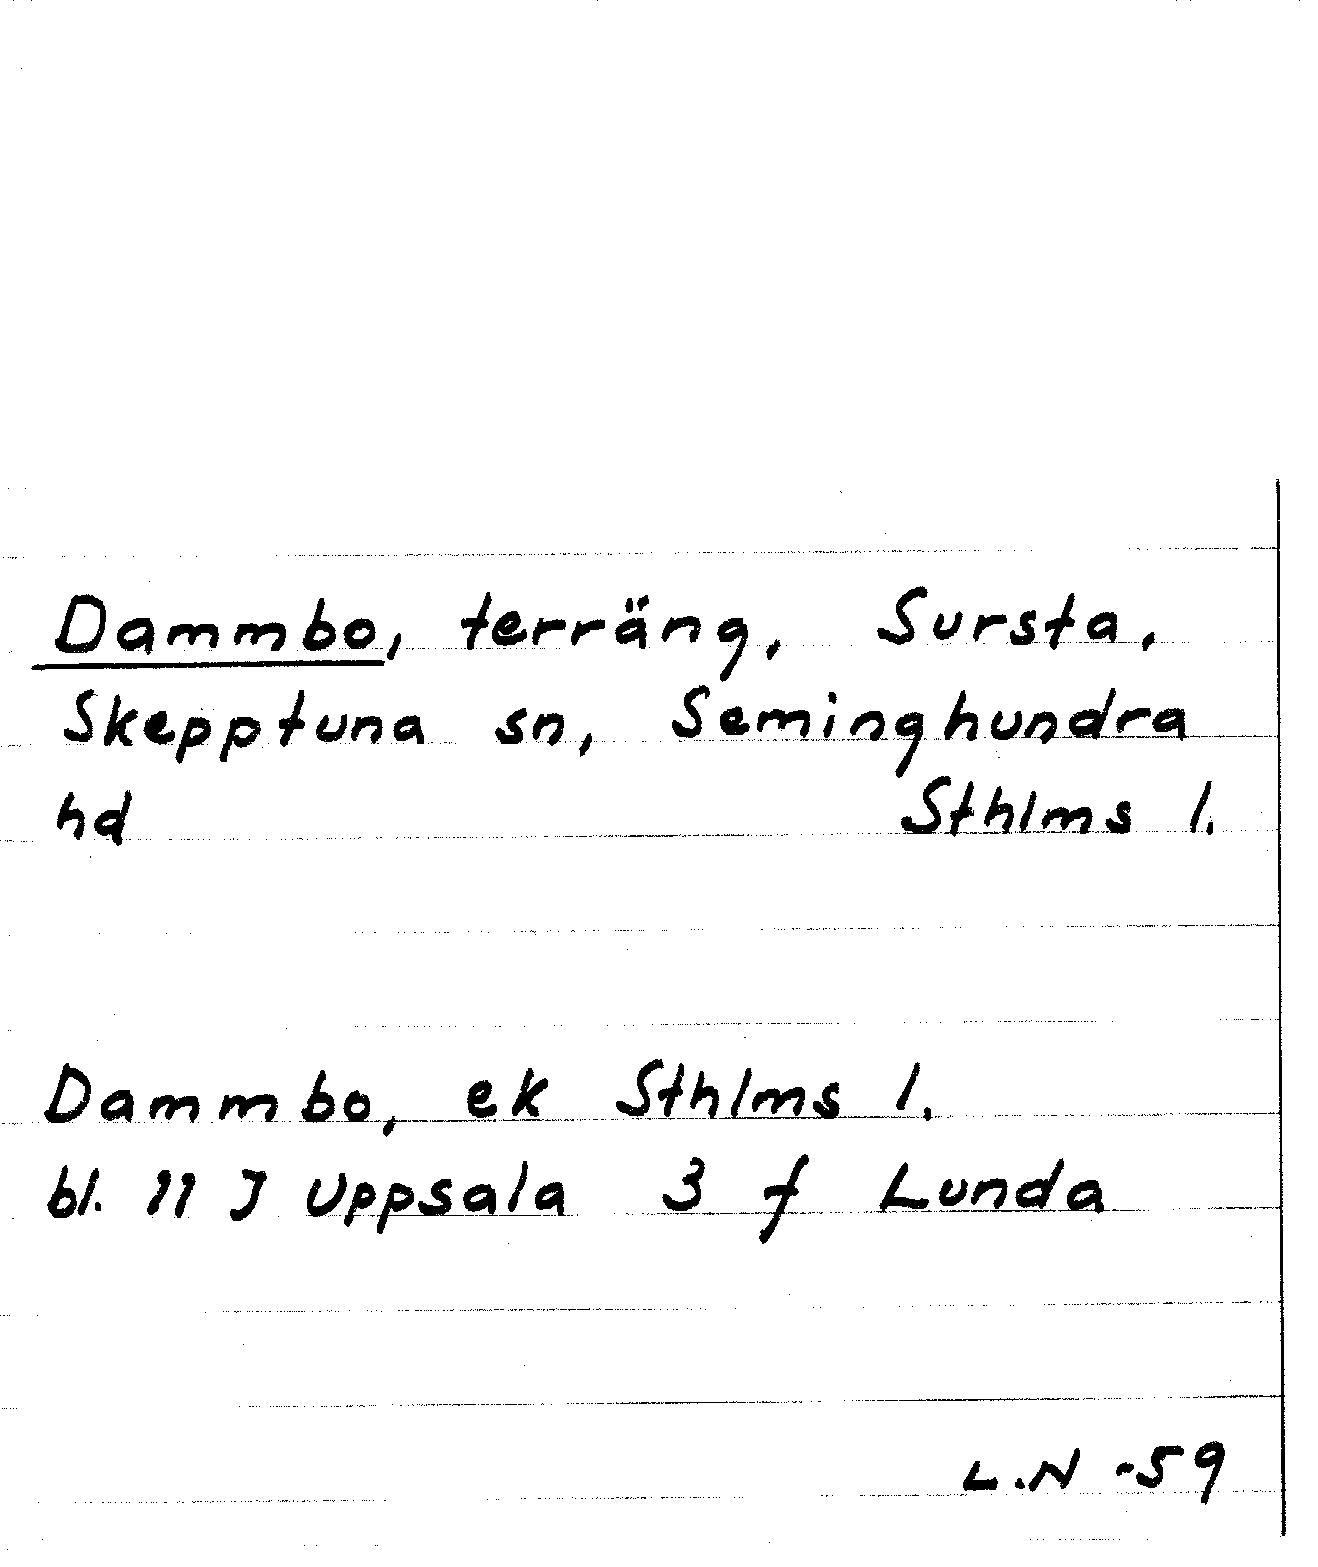 Dammbo, terräng, Sursta,
Skepptuna sn, Seminghundra
hd Sthlms l.
Dammbo, ek Sthlms l.
bl. 11 J Uppsala 3 f Lunda
L.N -59